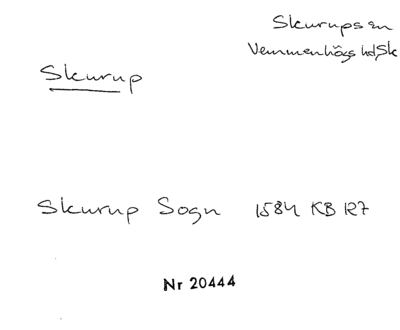 Skurups sn
Vemmenhögs hd, Sk
Skurup
Skurup Sogn 1584 KB 127
Nr 20444